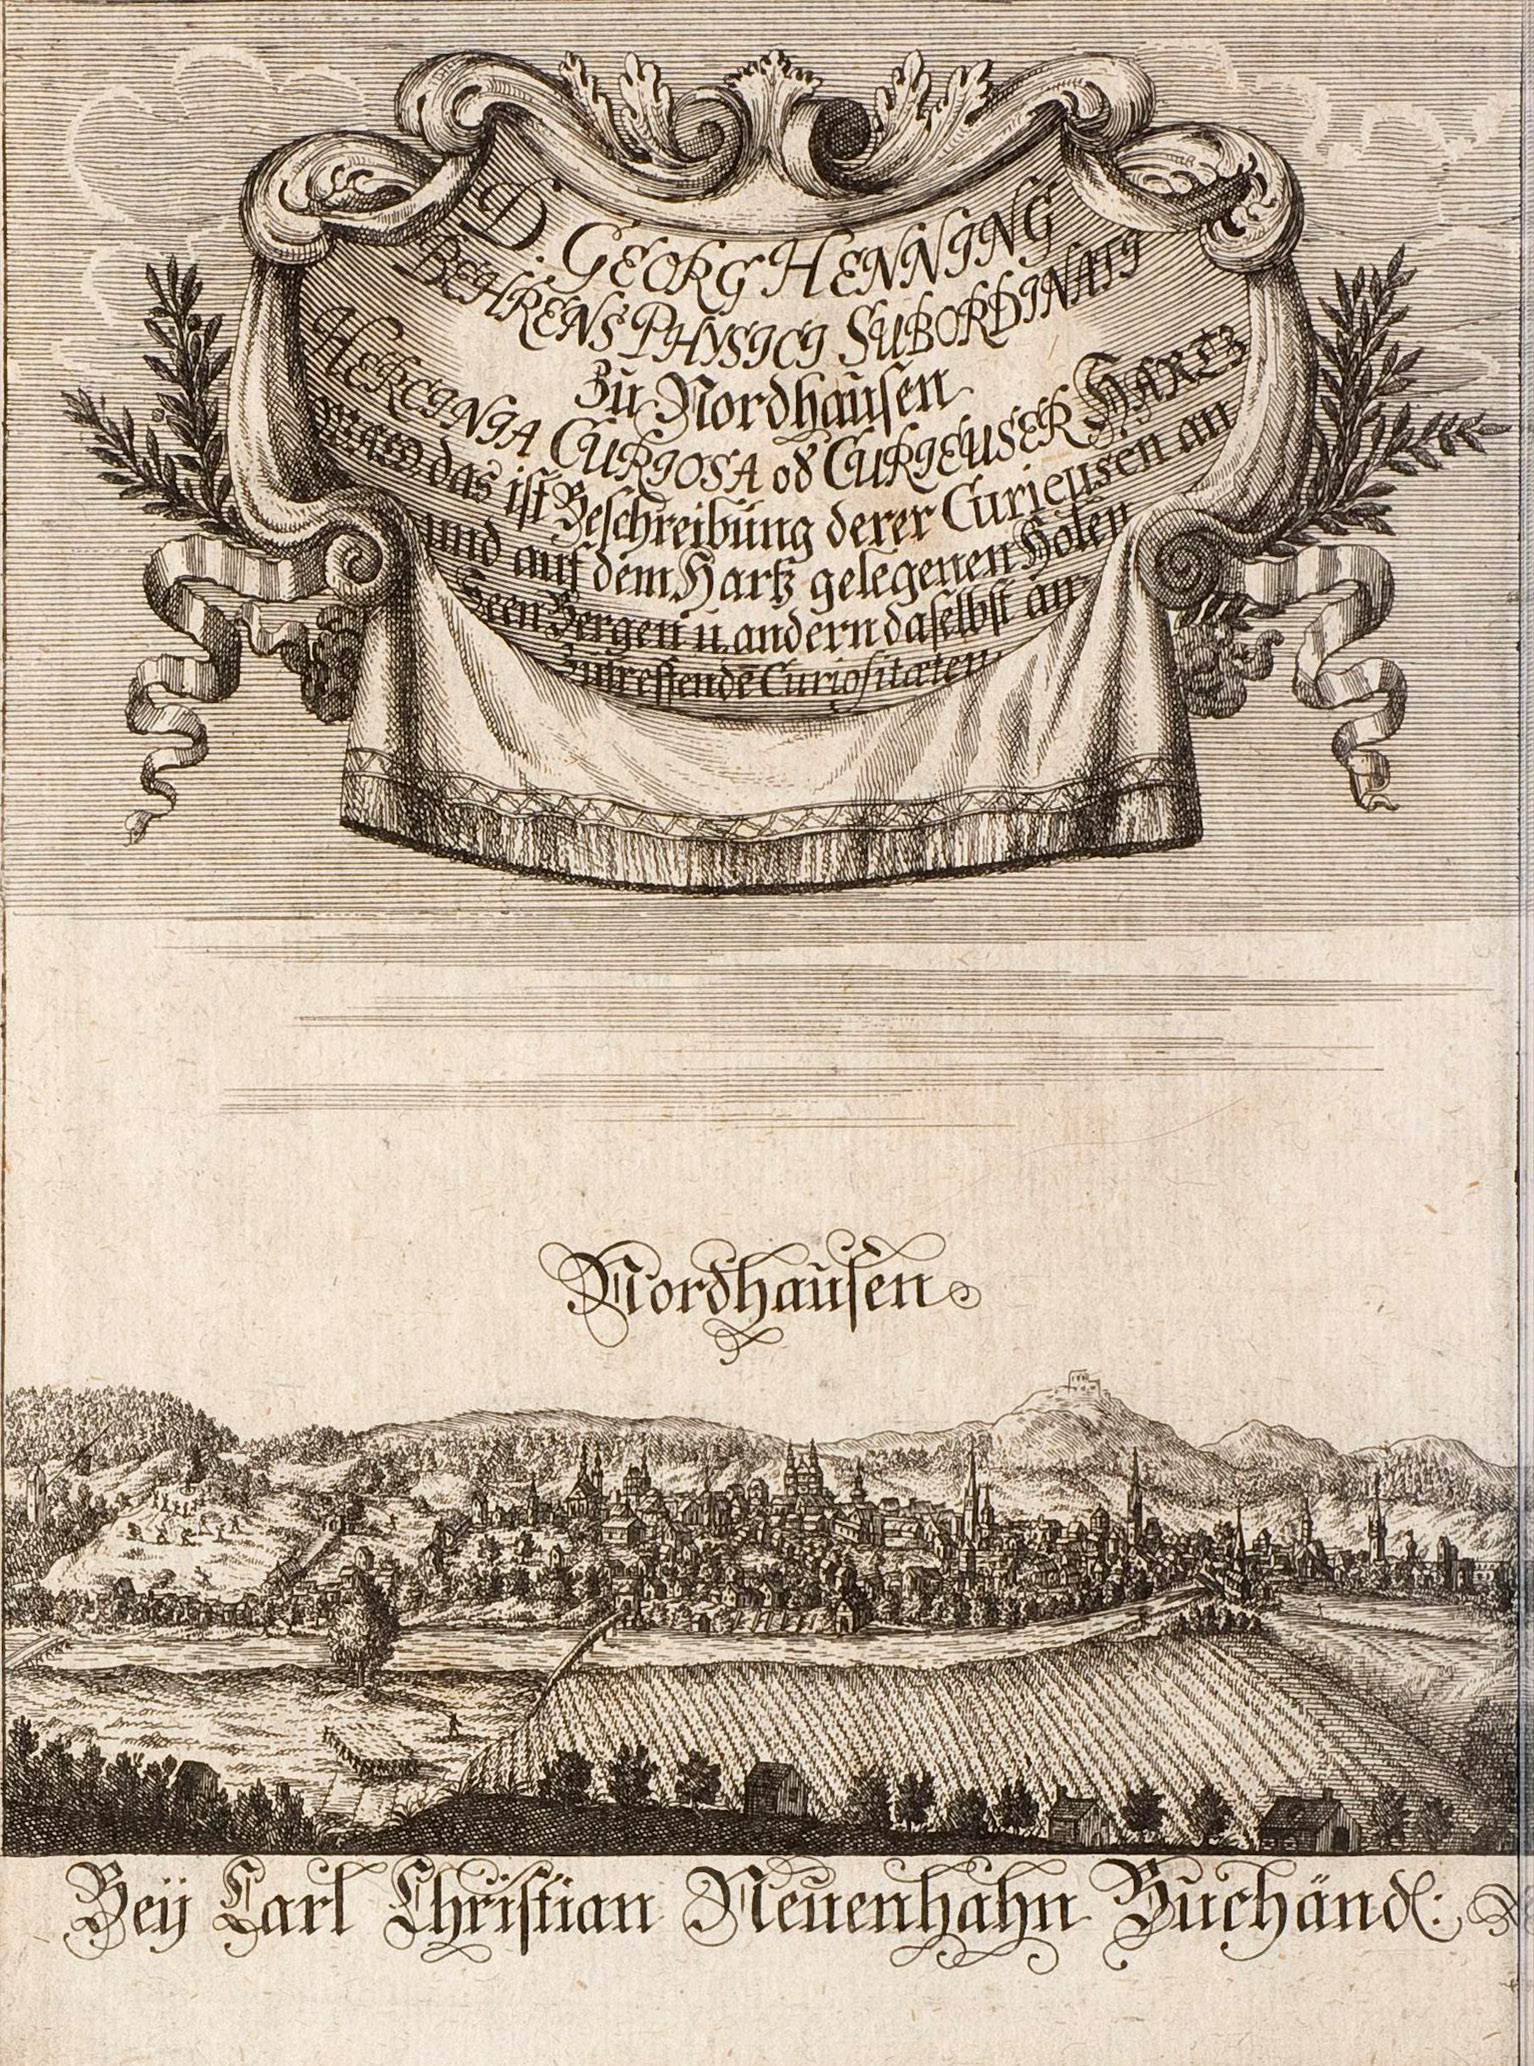 D. GEORG HENNING
BEHRENS PHYSICI SUBORDINATI
Zu Nordhausen
HERCINIA CURIOSA od CURIEUSER HARTZ
WALD das ist Beschreibung derer Curieusen an
und auf dem Hartz gelegenen Hölen
Seen Bergen u. andern daselbst an
zutreffendē Curiositæten
Nordhausen
Beÿ Carl Christian Neuenhahn Buchändl: